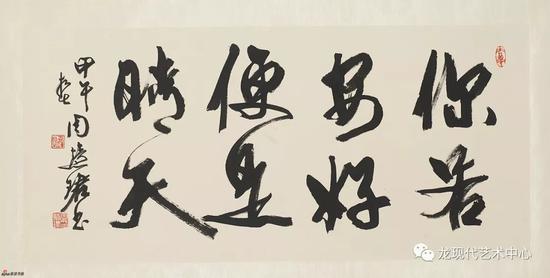 你若
安好
便是
晴天
甲午
周慧珺书
龙现代艺术中心